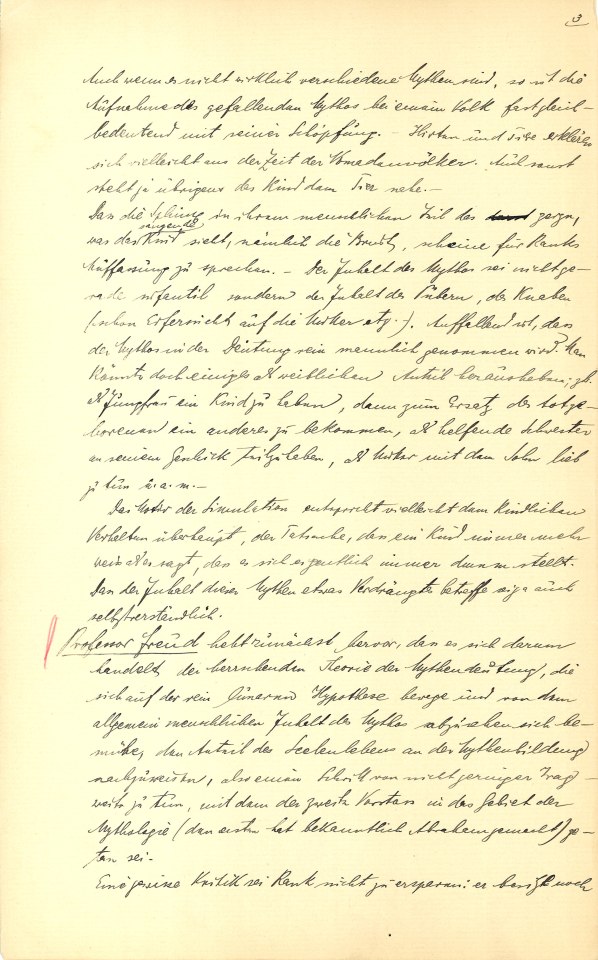 3
Auch wenn es nicht wirklich verschiedene Mythen sind, so ist die
Aufnahme des gefallenden Mythos bei einem Volk fast gleich-
bedeutend mit seiner Schöpfung. – Hirten und Tiere erklären
sich vielleicht aus der Zeit der Nomadenvölker. Auch sonst
steht ja übrigens das Kind dem Tier nahe. –
Dass die Sphinx in ihrem menschlichen Teil das zeige,
was das säugende Kind sieht, nämlich die Brust, scheine für Ranks
Auffassung zu sprechen. – Der Inhalt des Mythos sei nicht ge-
rade infantil sondern der Inhalt der Pubern, der Knaben
(schon Eifersucht auf die Mutter etz.). Auffallend ist, dass
der Mythos in der Deutung rein männlich genommen wird. Man
könnte doch einiges als weiblichen Anteil herausheben; zb.
als Jungfrau ein Kind zu haben, dann zum Ersatz des totge-
borenen ein anderes zu bekommen, als helfende Schwester
an seinem Geschick teilzuhaben, als Mutter mit dem Sohn lieb
zu tun u. a. m. –
Das Motiv der Simulation entspricht vielleicht dem kindlichen
Verhalten überhaupt, der Tatsache, dass ein Kind immer mehr
weiss als es sagt, dass es sich eigentlich immer dumm stellt.
Dass der Inhalt dieser Mythen etwas Verdrängtes betreffe sei ja auch
selbstverständlich.
Professor Freud hebt zunächst hervor, dass es sich darum
handelt, der herrschenden Theorie der Mythendeutung, die
sich auf der rein lunaren Hypothese bewege und von dem
allgemein menschlichen Inhalt des Mythos abzusehen sich be-
mühe, den Anteil des Seelenlebens an der Mythenbildung
nachzuweisen, also einen Schritt von nicht geringer Trag-
weite zu tun, mit dem der zweite Vorstoss in das Gebiet der
Mythologie (den ersten hat bekanntlich Abraham gemacht) ge-
tan sei. –
Eine gewisse Kritik sei Rank nicht zu ersparen: er besitze noch